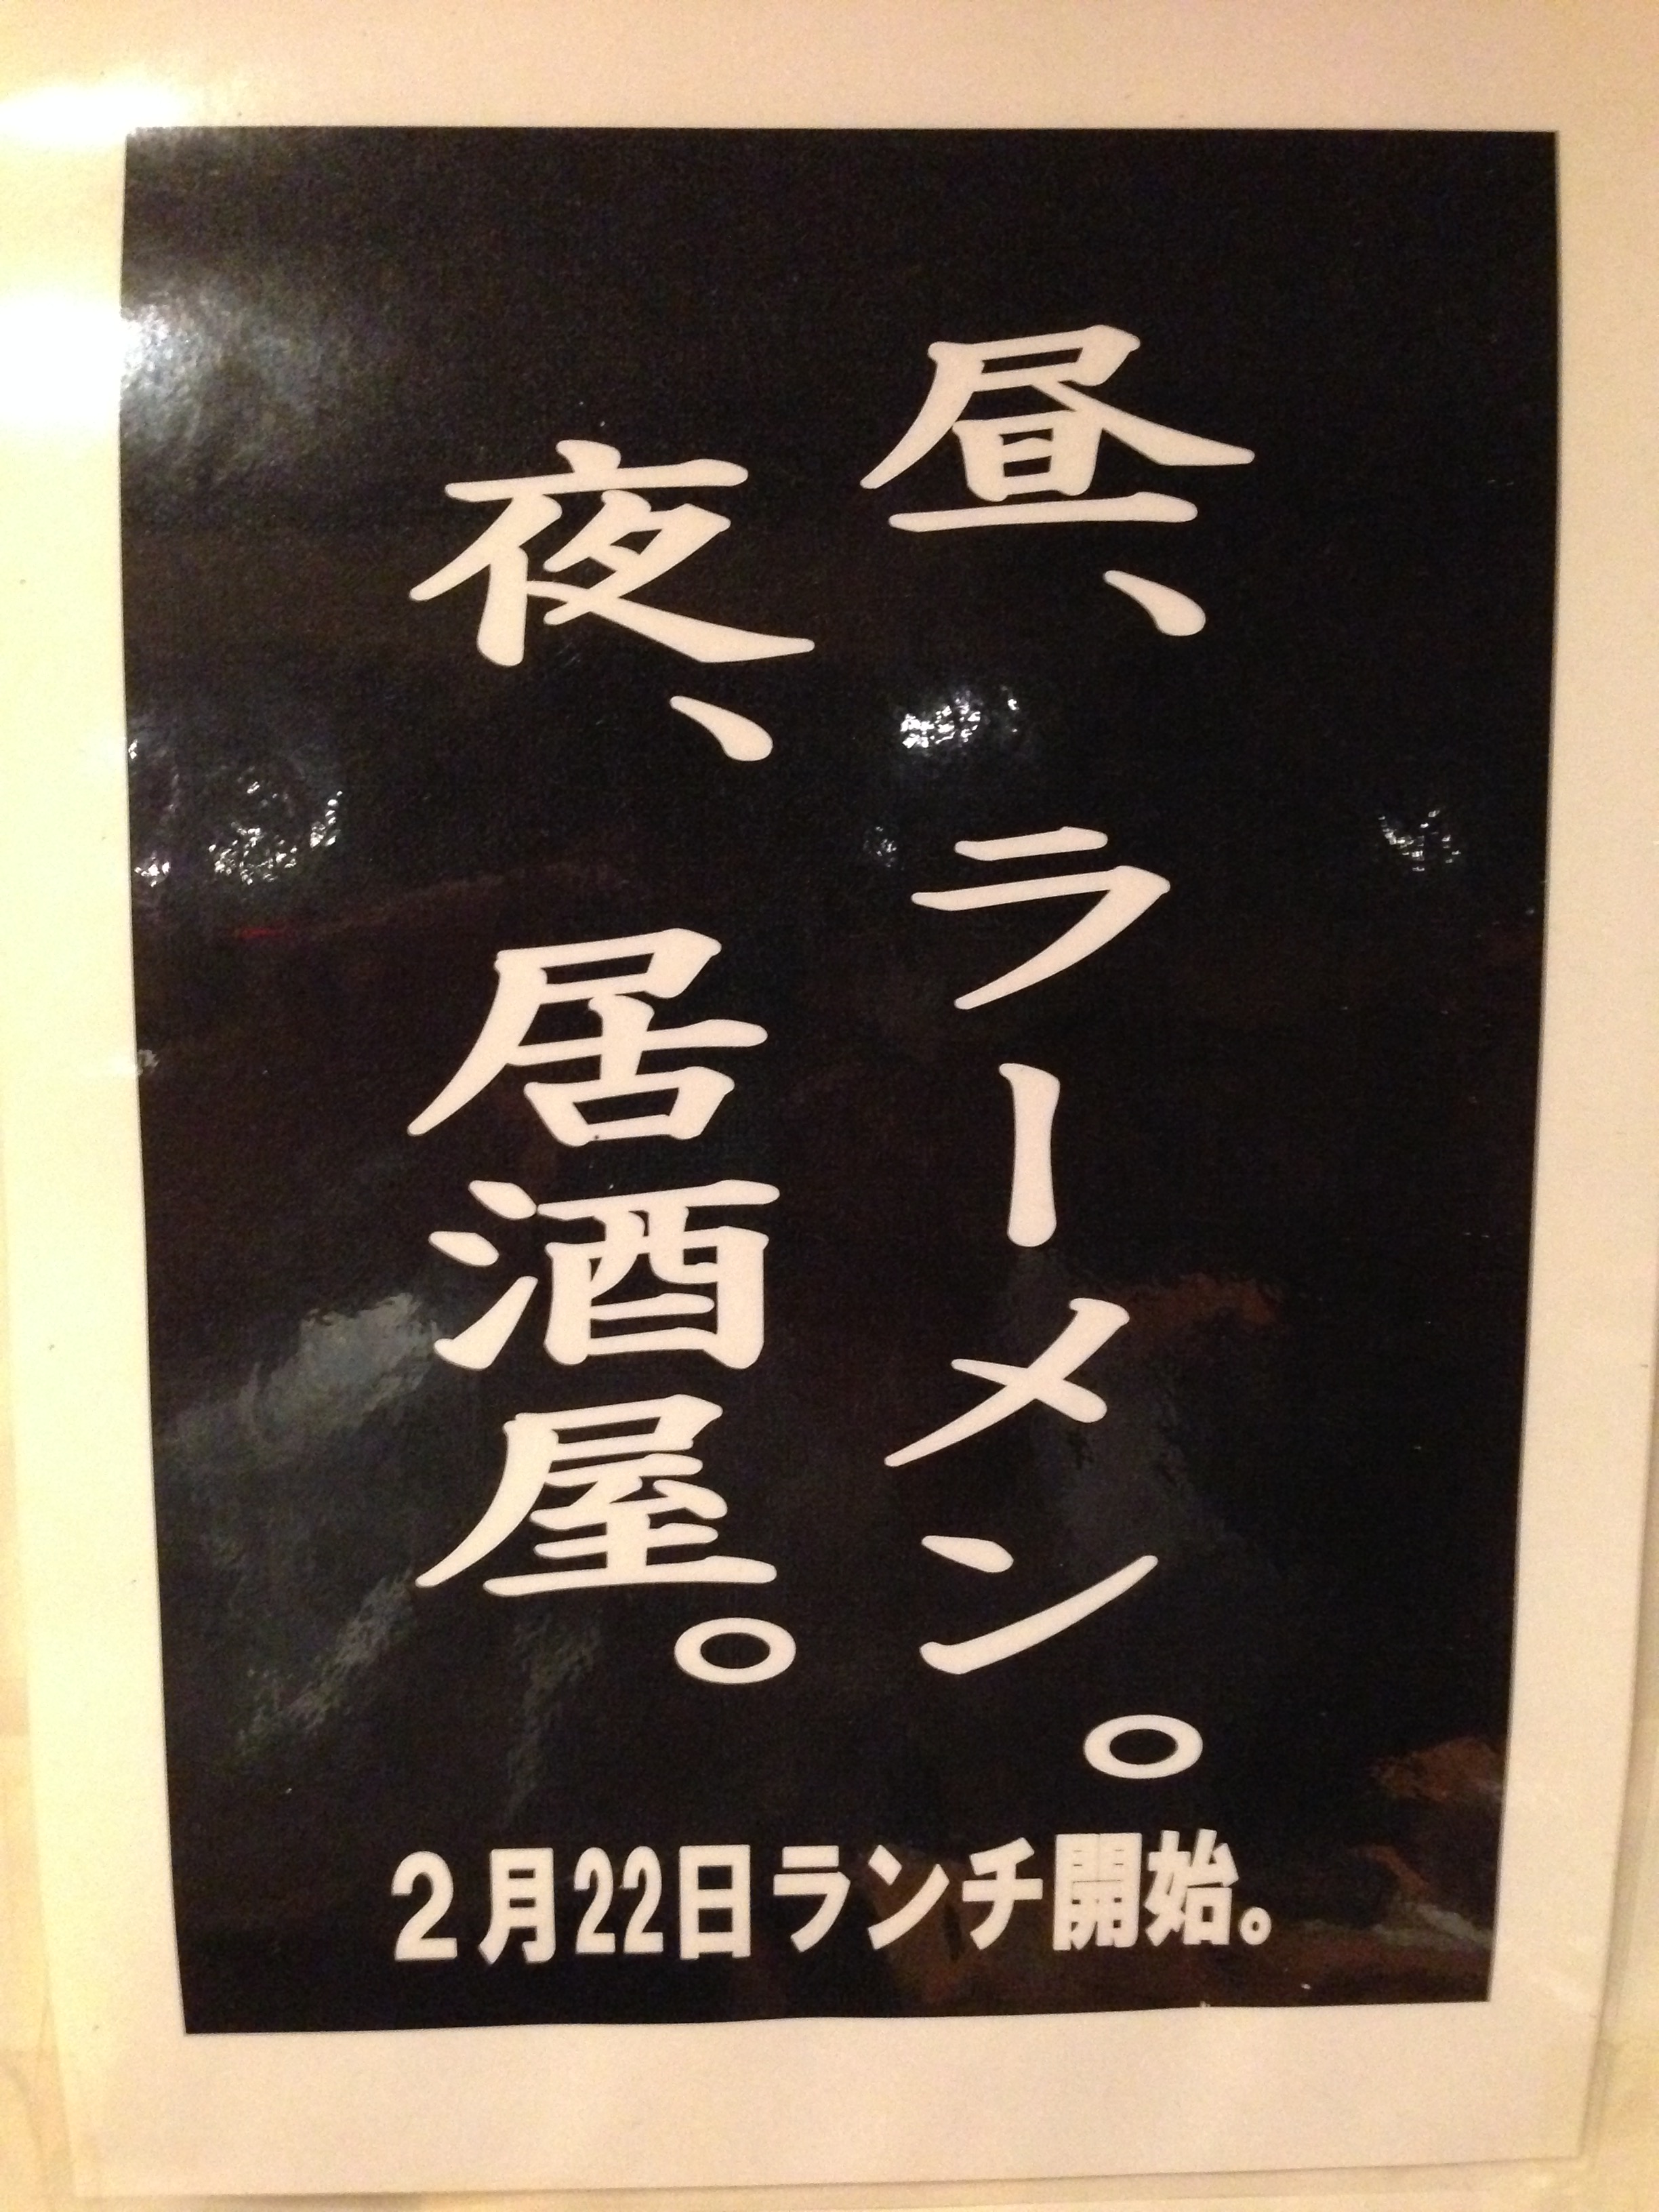 昼、ラーメン。
夜、居酒屋。
２月22日ランチ開始。